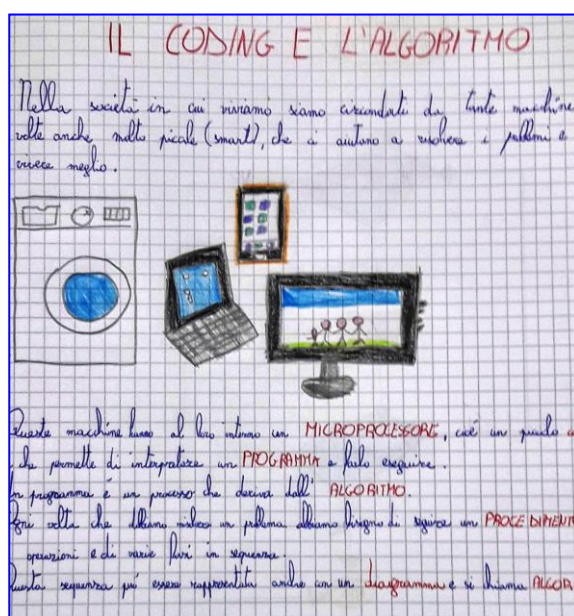 IL CODING E L'ALGORITMO
Nella società in cui viviamo siamo circondati da tante macchine
volte anche molto picale (smart), che ci aiutano a risolvere i problemi e
vivere meglio.
Queste macchine hanno al loro interno un MICROPROCESSORE, cioè un piccolo
che permette di interpretare un PROGRAMMA e farlo eseguire.
Un programma è un processo che deriva dall' ALGORITMO.
Ogni volta che dobbiamo risolvere un problema abbiamo bisogno di seguire un PROCEDIMENTO
operazioni e di varie fasi in sequenza.
Questa sequenza può essere rappresentata anche con un diagramma e si chiama ALGOR